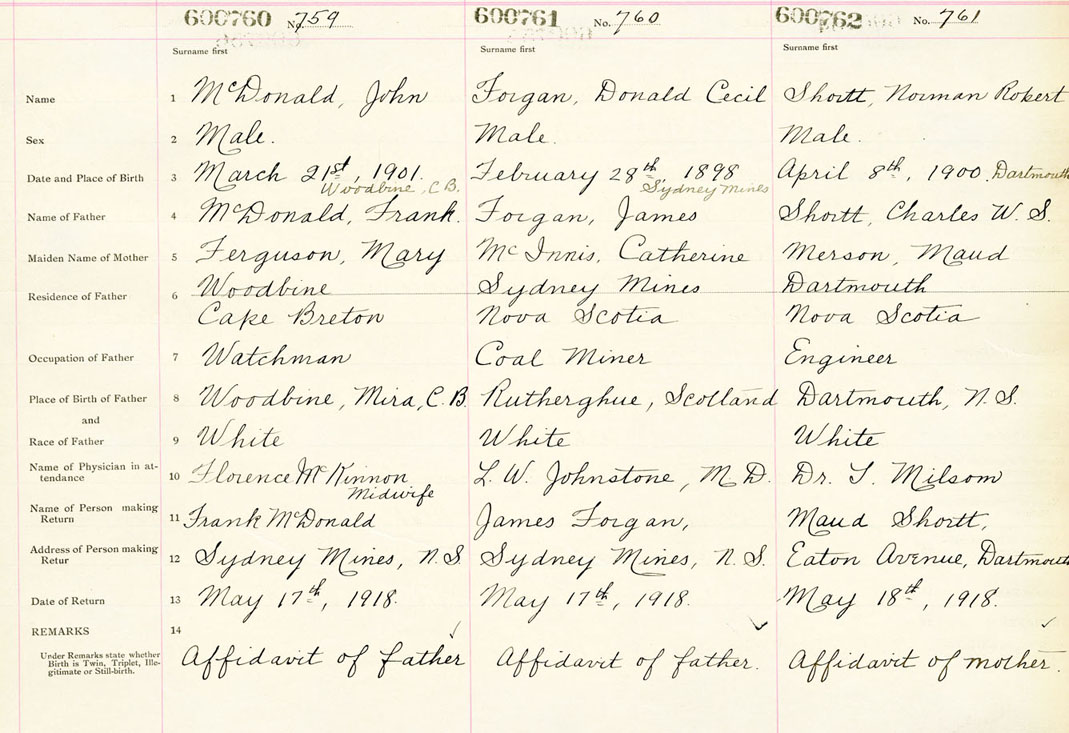 600760 No. 759 600761 No. 760 600762 No. 761
Surname first Surname first Surname first
Name 1 McDonald, John Forgan, Donald Cecil Shortt, Norman Robert
Sex 2 Male. Male. Male.
Date and Place of Birth 3 March 21st, 1901. February 28th, 1898 April 8th, 1900. Dartmouth
Woodbine, C.B. Sydney Mines
Name of Father 4 McDonald, Frank. Forgan, James Shortt, Charles W. S.
Maiden Name of Mother 5 Ferguson, Mary McInnis, Catherine Merson, Maud
Residence of Father 6 Woodbine Sydney Mines Dartmouth
Cape Breton Nova Scotia Nova Scotia
Occupation of Father 7 Watchman Coal Miner Engineer
Place of Birth of Father 8 Woodbine, Mira, C.B. Rutherghue, Scotland Dartmouth, N.S.
and
Race of Father 9 White White White
Name of Physician in at-
tendance 10 Florence McKinnon L. W. Johnstone, M.D. Dr. T. Milsom
Midwife
Name of Person making
Return 11 Frank McDonald James Forgan, Maud Shortt,
Address of Person making
Retur 12 Sydney Mines, N.S. Sydney Mines, N.S. Eaton Avenue, Dartmouth
Date of Return 13 May 17th, 1918. May 17th, 1918. May 18th, 1918.
REMARKS 14
Under Remarks state whether
Birth is Twin, Triplet, Ille-
gitimate or Still-birth.
Affidavit of father Affidavit of father. Affidavit of mother.